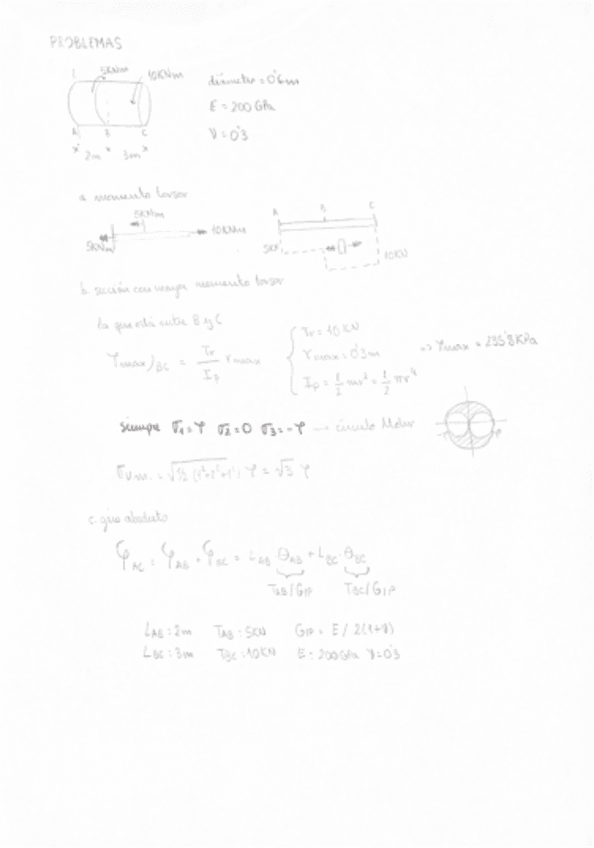 PROBLEMAS
5KNm 10KNm
diámetro = 0'6m
E = 200 GPa
ν = 0'3
A B C
2m 3m
a. momento torsor
5KNm
5KNm 10KNm
A B C
5KN
10KN
b. sección con mayor momento torsor
La que está entre B y C
τmax)BC = Tr/Ip rmax
Tr = 10 KN
rmax = 0'3m
Ip = 1/2 mr² = 1/2 πr⁴
=> τmax = 235'8 KPa
siempre σ1 = τ σ2 = 0 σ3 = -τ → círculo Mohr
σv.m. = √(1/2 (1²+2²+1²)) τ = √3 τ
c. giro absoluto
φAC = φAB + φBC = LAB θAB + LBC θBC
TAB/GIP TBC/GIP
LAB: 2m TAB: 5KN GIP = E / 2(1+ν)
LBC: 3m TBC: 10KN E: 200GPa ν = 0'3